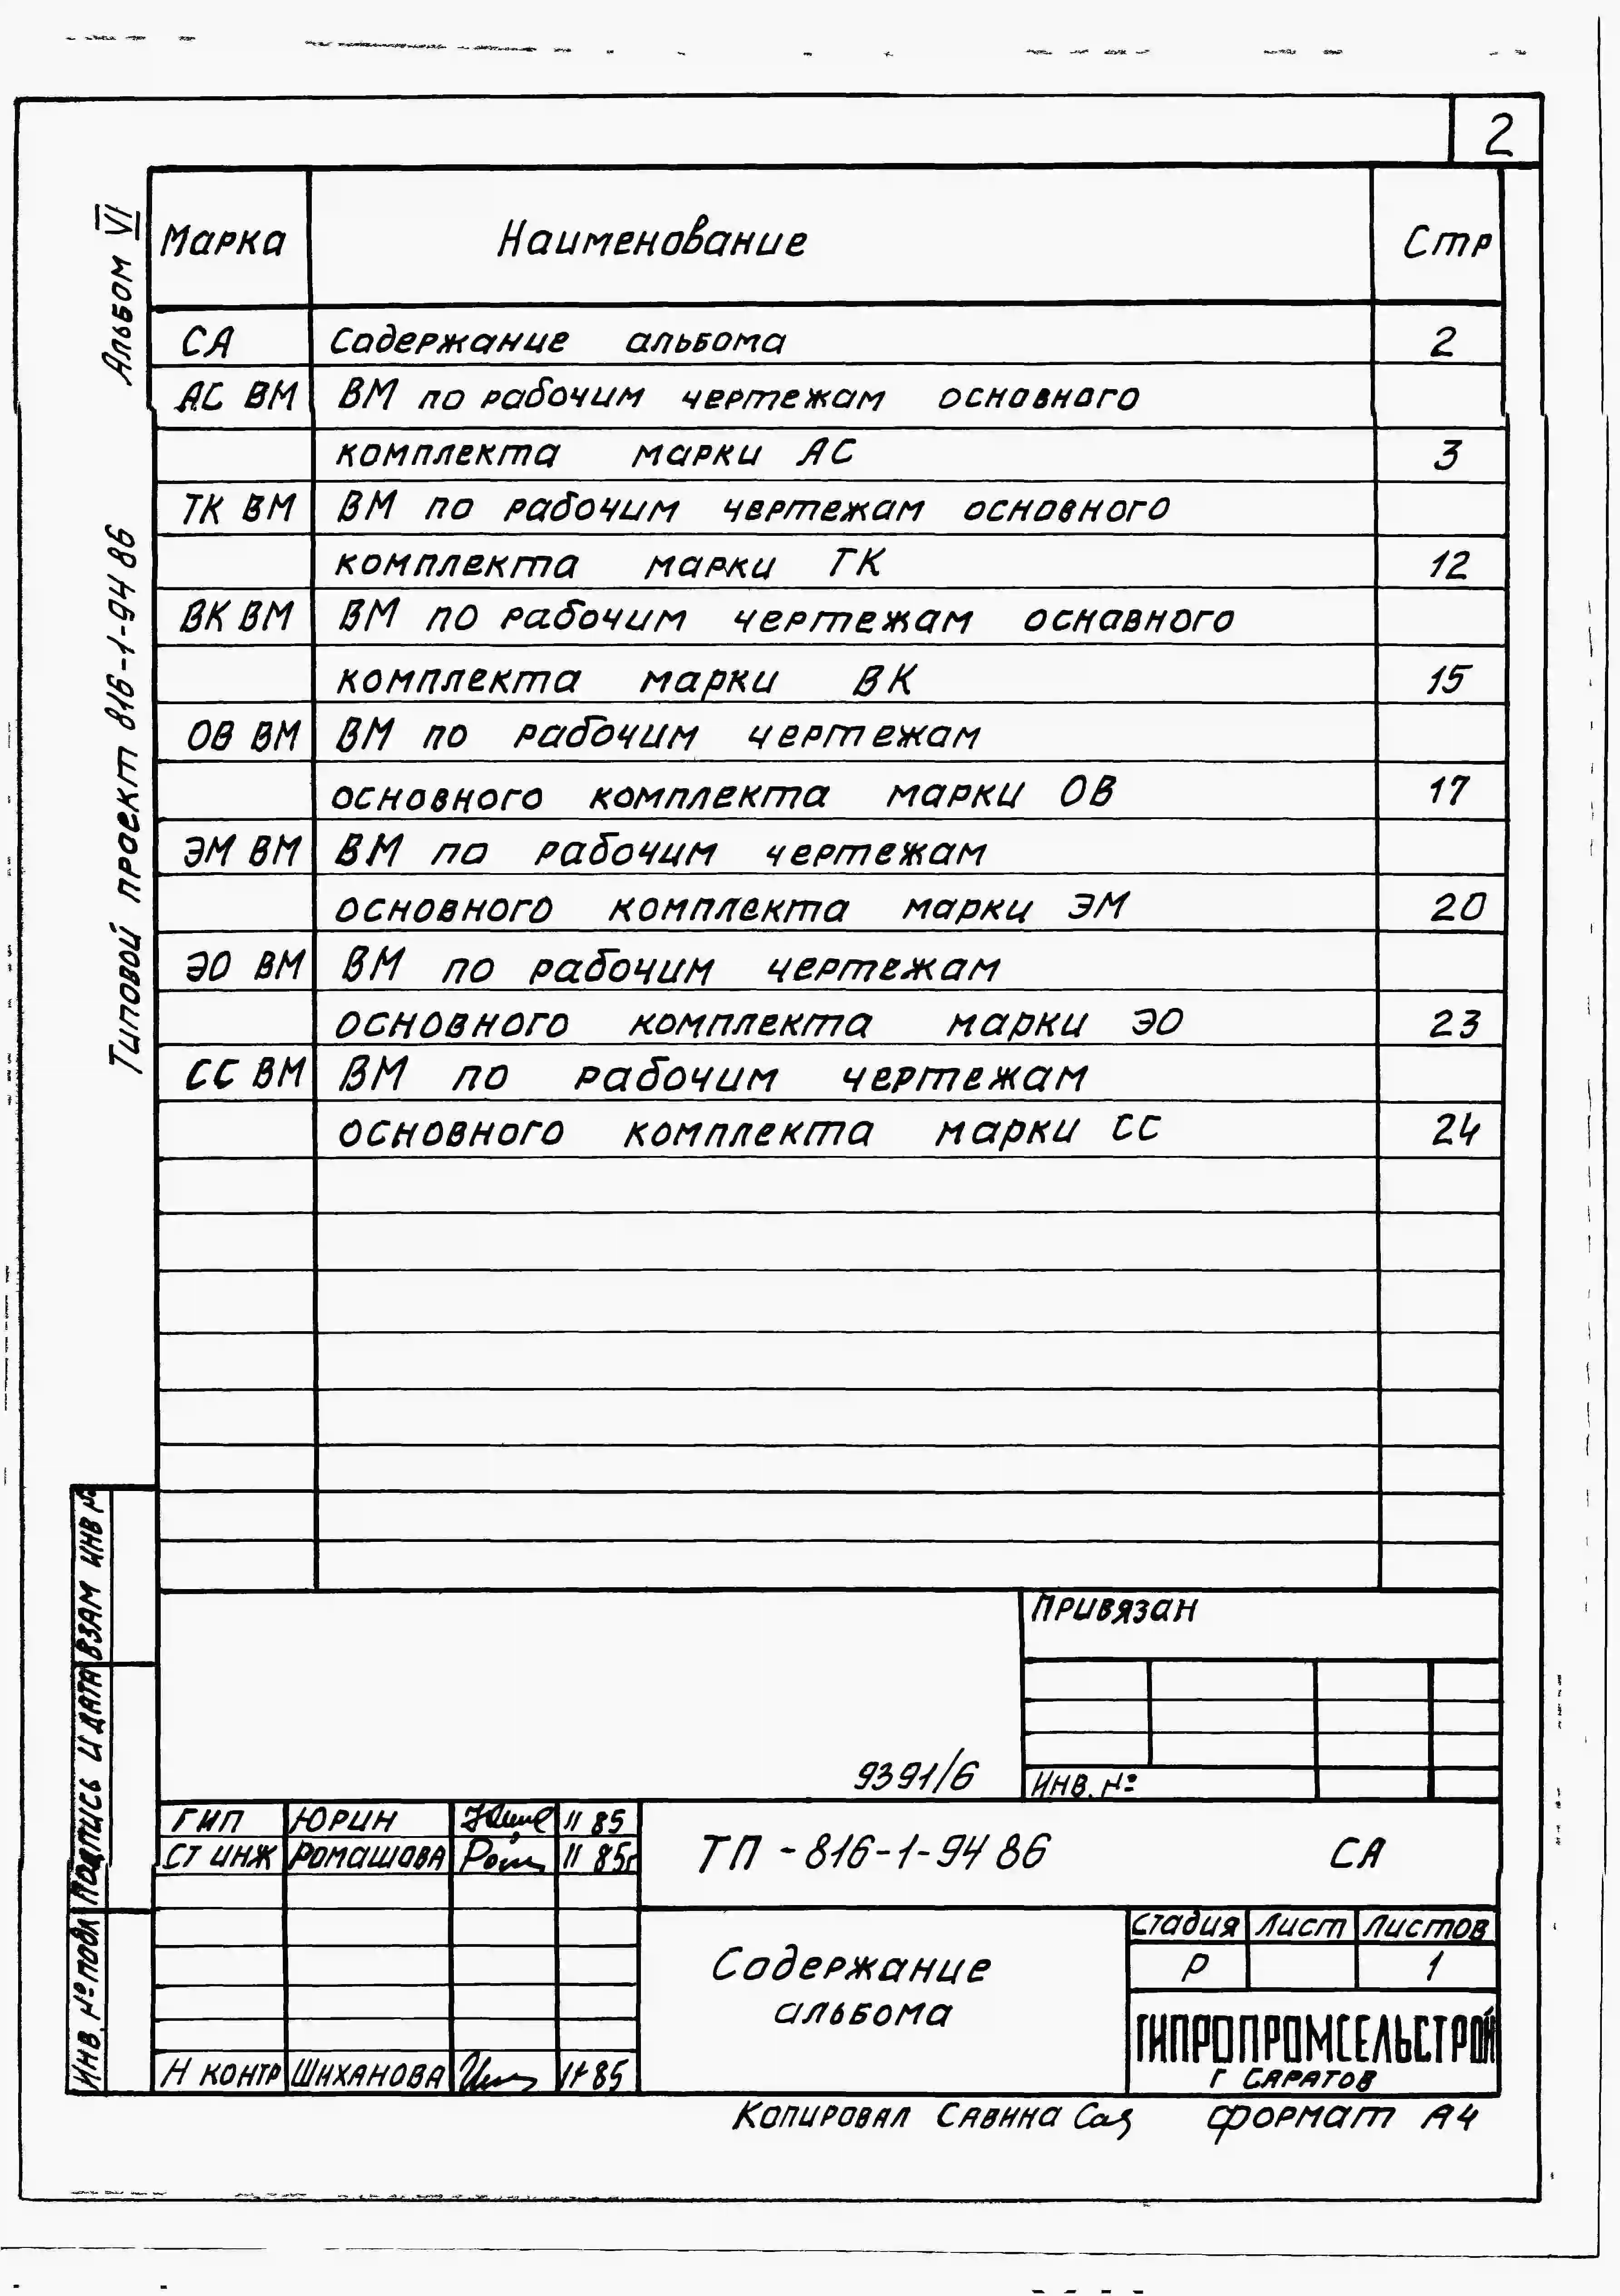 2
Альбом VI
Типовой проект 816-1-94 86
Марка Наименование Стр
СА Содержание альбома 2
АС ВМ ВМ по рабочим чертежам основного
комплекта марки АС 3
ТК ВМ ВМ по рабочим чертежам основного
комплекта марки ТК 12
ВК ВМ ВМ по рабочим чертежам основного
комплекта марки ВК 15
ОВ ВМ ВМ по рабочим чертежам
основного комплекта марки ОВ 17
ЭМ ВМ ВМ по рабочим чертежам
основного комплекта марки ЭМ 20
ЭО ВМ ВМ по рабочим чертежам
основного комплекта марки ЭО 23
СС ВМ ВМ по рабочим чертежам
основного комплекта марки СС 24
ВЗАМ ИНВ №
Подпись и дата
ИНВ. № подл
Привязан
9391/6
ИНВ. №
ГИП ЮРИН 11 85
СТ ИНЖ РОМАШОВА 11 85г
Н КОНТР ШИХАНОВА 11 85
ТП -816-1-94 86 СА
Содержание
альбома
Стадия Лист Листов
Р 1
ГИПРОПРОМСЕЛЬСТРОЙ
г САРАТОВ
Копировал Савина формат А4